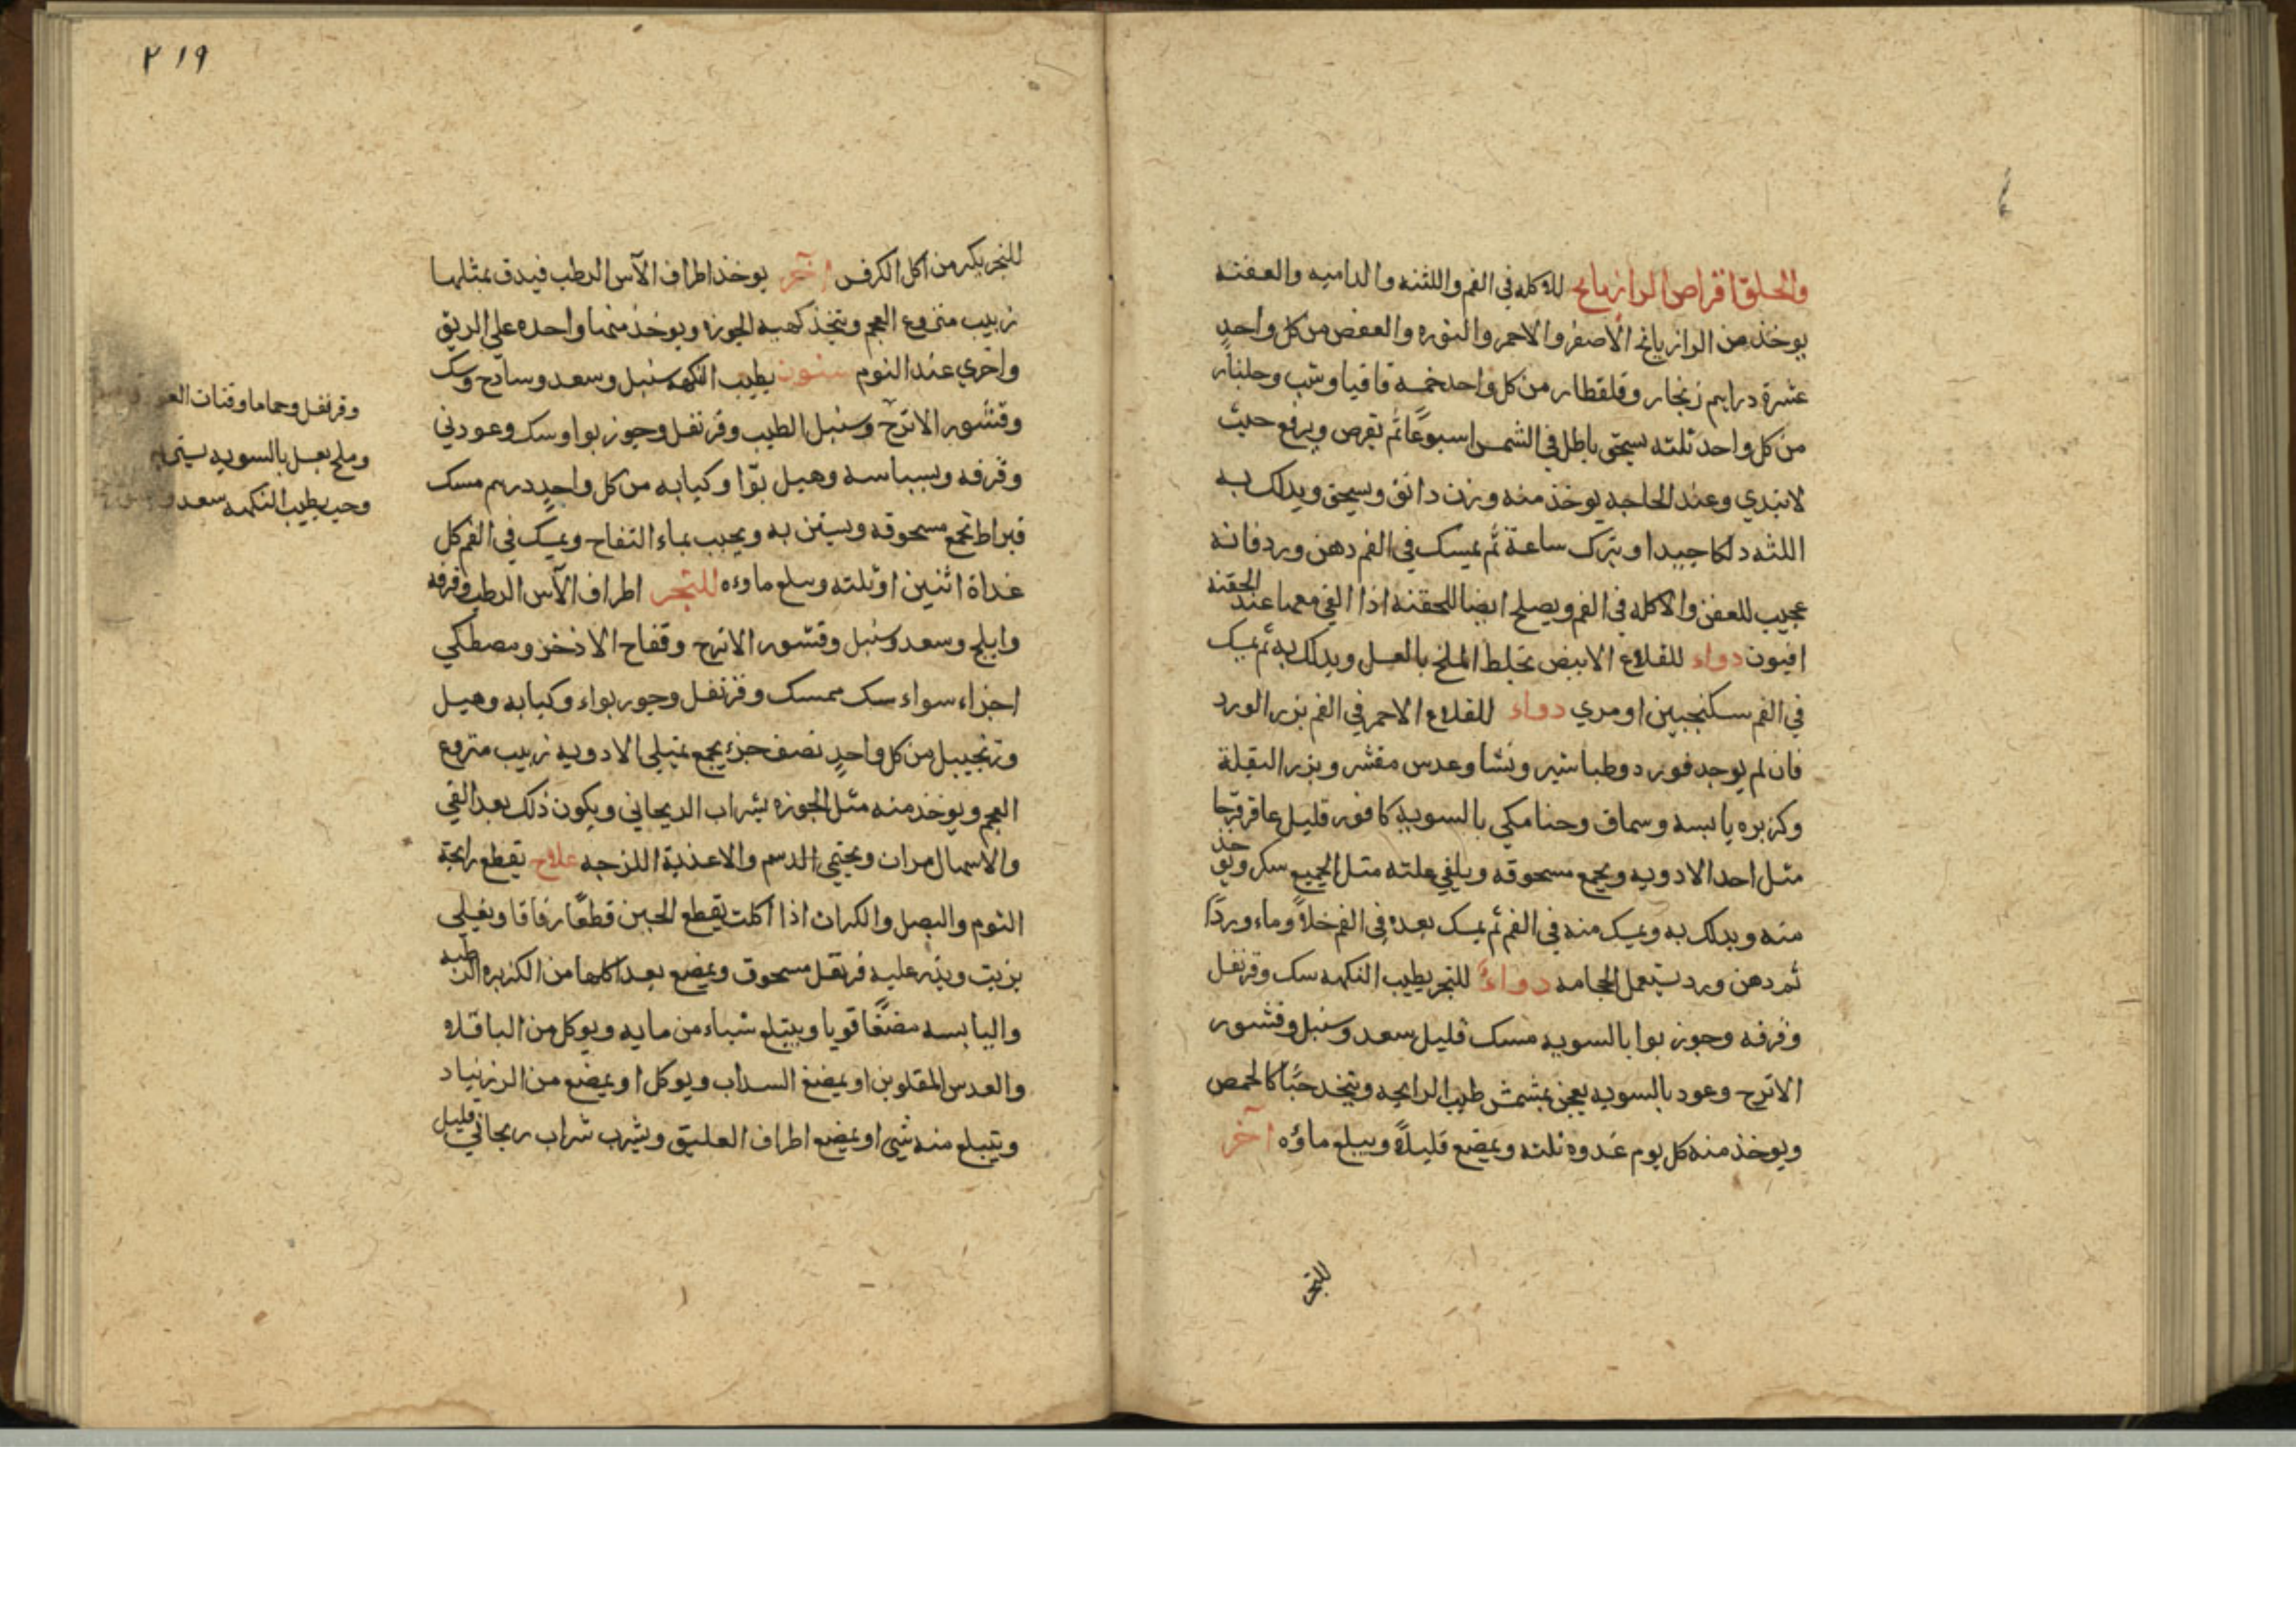 والحلق اقراص الرازيانج للاكله في الفم واللثه والداميه والعفنه
يوخذ من الرازيانج الاصفر والاحمر والنوره والعفص من كل واحد
عشرة دراهم زنجار وقلقطار من كل واحد خمسه قاقيا وشب وجلنار
من كل واحد ثلثه يسحق باطل في الشمس اسبوعًا ثم يقرص ويرفع حيث
لا تبدي وعند الحاجه يوخذ منه وزن دانق ويسحق ويدلك به
اللثه دلكا جيدا ويترك ساعة ثم يمسك في الفم دهن ورد فانه
عجيب للعفن والاكله في الفم ويصلح ايضا للحقنه اذا القي معها عند الحقنه
افيون دواء للقلاع الابيض تخلط الملح بالعسل ويدلك به ثم يمسك
في الفم سكنجبين او مري دواء للقلاع الاحمر في الفم بزر الورد
فان لم يوجد فورد وطباشير ونشا وعدس مقشر وبزر البقلة
وكزبره يابسه وسماق وحنا مكي بالسويه كافور قليل عاقرقرحا
مثل احد الادويه ويجمع مسحوقه ويلقي علته مثل الجميع سكر ويوخذ
منه ويدلك به ويمسك منه في الفم ثم يمسك بعده في الفم خلاً وماء وردًا
ثم دهن ورد يستعمل الحجامه دواءً للبخر يطيب النكهه سك وقرنفل
وقرفه وجوز بوا بالسويه مسك قليل سعد وسنبل وقشور
الاترج وعود بالسويه يعجن بمشمش طيب الرايحه ويتخذ حبًّا كالحمص
ويوخذ منه كل يوم غدوه ثلثه ويمضغ قليلاً ويبلع ماؤه آخر
للبخر
٢١٩
للبخر يكثر من اكل الكرفس آخر يوخذ اطراف الآس الرطب فيدق بمثلها
زبيب منزوع العجم ويتخذ كهيه الجوزه ويوخذ منها واحده علي الريق
واخري عند النوم سنون يطيب النكهه سنبل وسعد وسادج وسك
وقشور الاترج وسنبل الطيب وقرنفل وجوز بوا وسك وعود ني
وقرفه وبسباسه وهيل بوّا وكبابه من كل واحدٍ درهم مسك
قيراط تجمع مسحوقه ويستن به ويحبب بماء التفاح ويمسك في الفم كل
غداة اثنين او ثلثه ويبلع ماوءه للبخر اطراف الآس الرطب وقرفه
وابلج وسعد وسنبل وقشور الاترج وفقاح الاذخر ومصطكي
اجزاء سواء سك ممسك وقرنفل وجوز بواء وكبابه وهيل
وزنجبيل من كل واحدٍ نصف جزء يجمع بمثلي الادويه زبيب منزوع
العجم ويوخذ منه مثل الجوزه بشراب الريحاني ويكون ذلك بعد القي
والاسهال مرات ويجتنب الدسم والاغذية اللزجه علاج يقطع رايحة
الثوم والبصل والكراث اذا اكلت يقطع الجبن قطعًا رقاقا ويغلي
بزيت ويذر عليه قرنفل مسحوق ويمضغ بعد اكلها من الكزبره الرطبه
واليابسه مضغًا قويا ويبتلع شياء من مايه ويوكل من الباقلاه
والعدس المقلوين او يمضغ السداب ويوكل او يمضغ من الزرنباد
ويتبلع منه شي او يمضغ اطراف العليق ويشرب شراب ريحاني قليل
وقرنفل وحماما وفتات
وملح بعسل بالسويه
وحب يطيب النكهه سعد